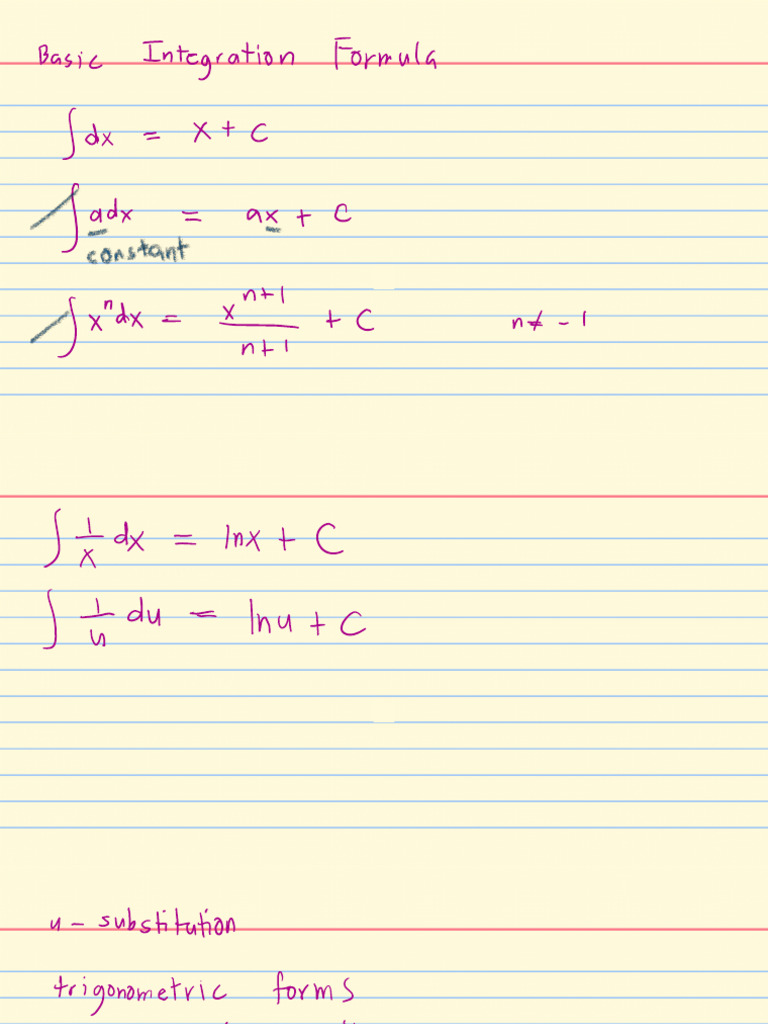 Basic Integration Formula
∫dx = x + C
∫adx = ax + C
constant
∫xⁿdx = xⁿ⁺¹/n+1 + C n ≠ -1
∫ 1/x dx = lnx + C
∫ 1/u du = lnu + C
u - substitution
trigonometric forms